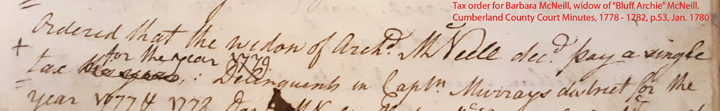 Tax order for Barbara McNeill, widow of "Bluff Archie" McNeill.
Cumberland County Court Minutes, 1778 - 1782, p.53, Jan. 1780
Ordered that the widow of Archd. McNeill decd. pay a single
for the year 1779
tax : Delinquents in Captn. Murrays district for the
year 1777 & 1778